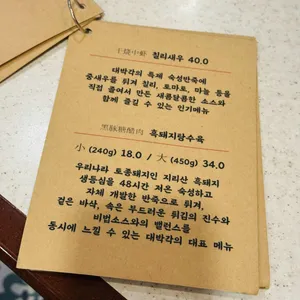 干燒中蝦 칠리새우 40.0
대박각의 흑제 숙성반죽에
중새우를 튀겨 칠리, 토마토, 마늘 등을
직접 졸여서 만든 새콤달콤한 소스와
함께 즐길 수 있는 인기메뉴
黑豚糖醋肉 흑돼지탕수육
小 (240g) 18.0 / 大 (450g) 34.0
우리나라 토종돼지인 지리산 흑돼지
생등심을 48시간 저온 숙성하고
자체 개발한 반죽으로 튀겨,
겉은 바삭, 속은 부드러운 튀김의 진수와
비법소스와의 밸런스를
동시에 느낄 수 있는 대박각의 대표 메뉴